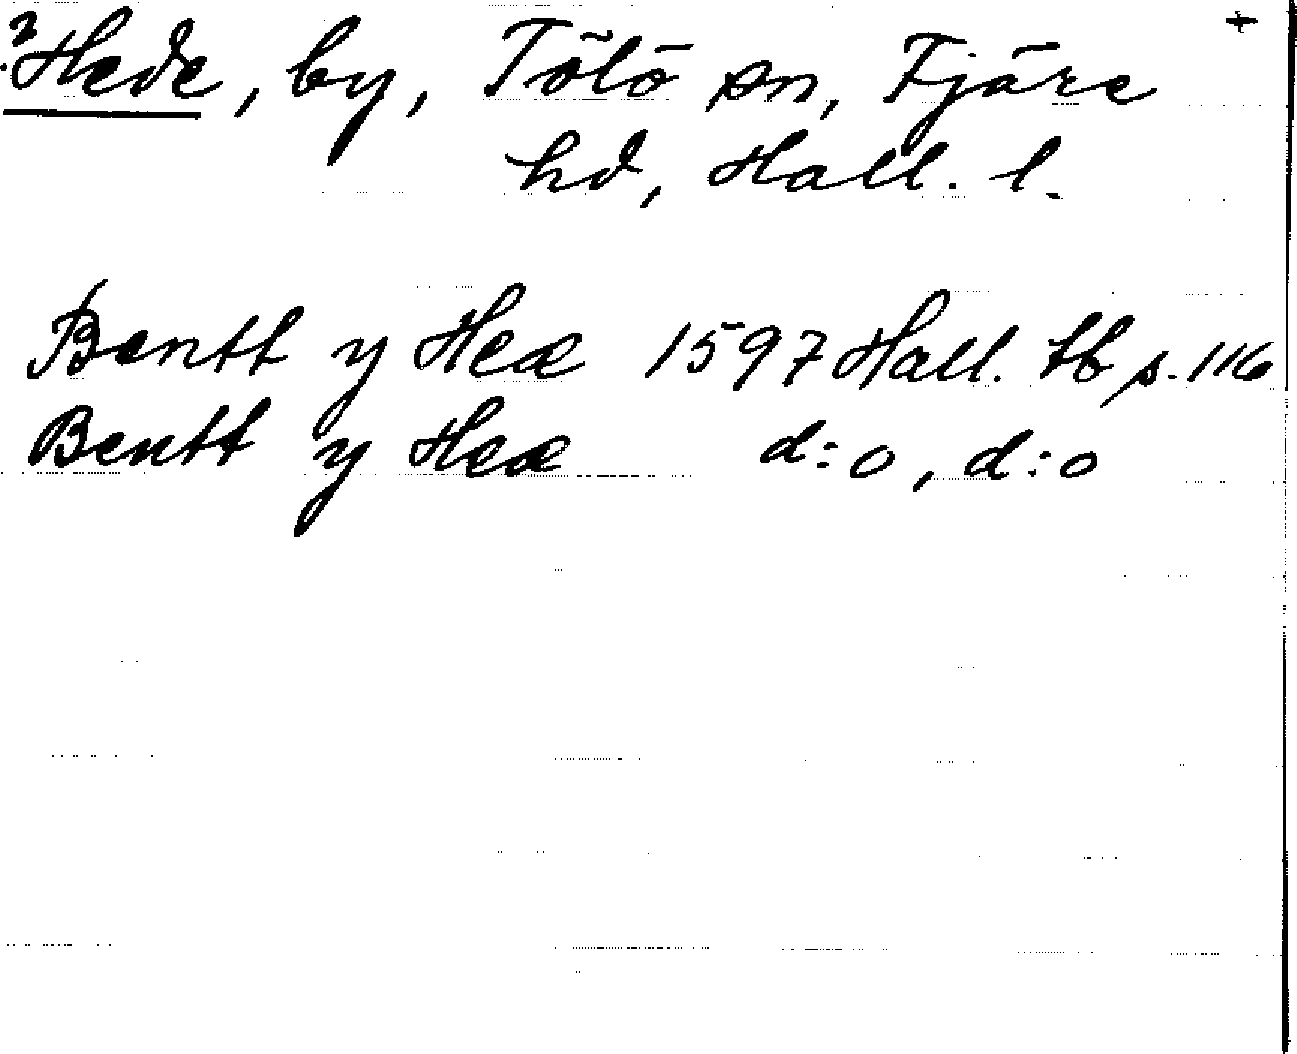 2 Hede, by, Tölö sn, Fjäre +
hd, Hall. l.
Bentt y Heæ 1597 Hall. tb s. 116
Bentt y Heæ d:o, d:o